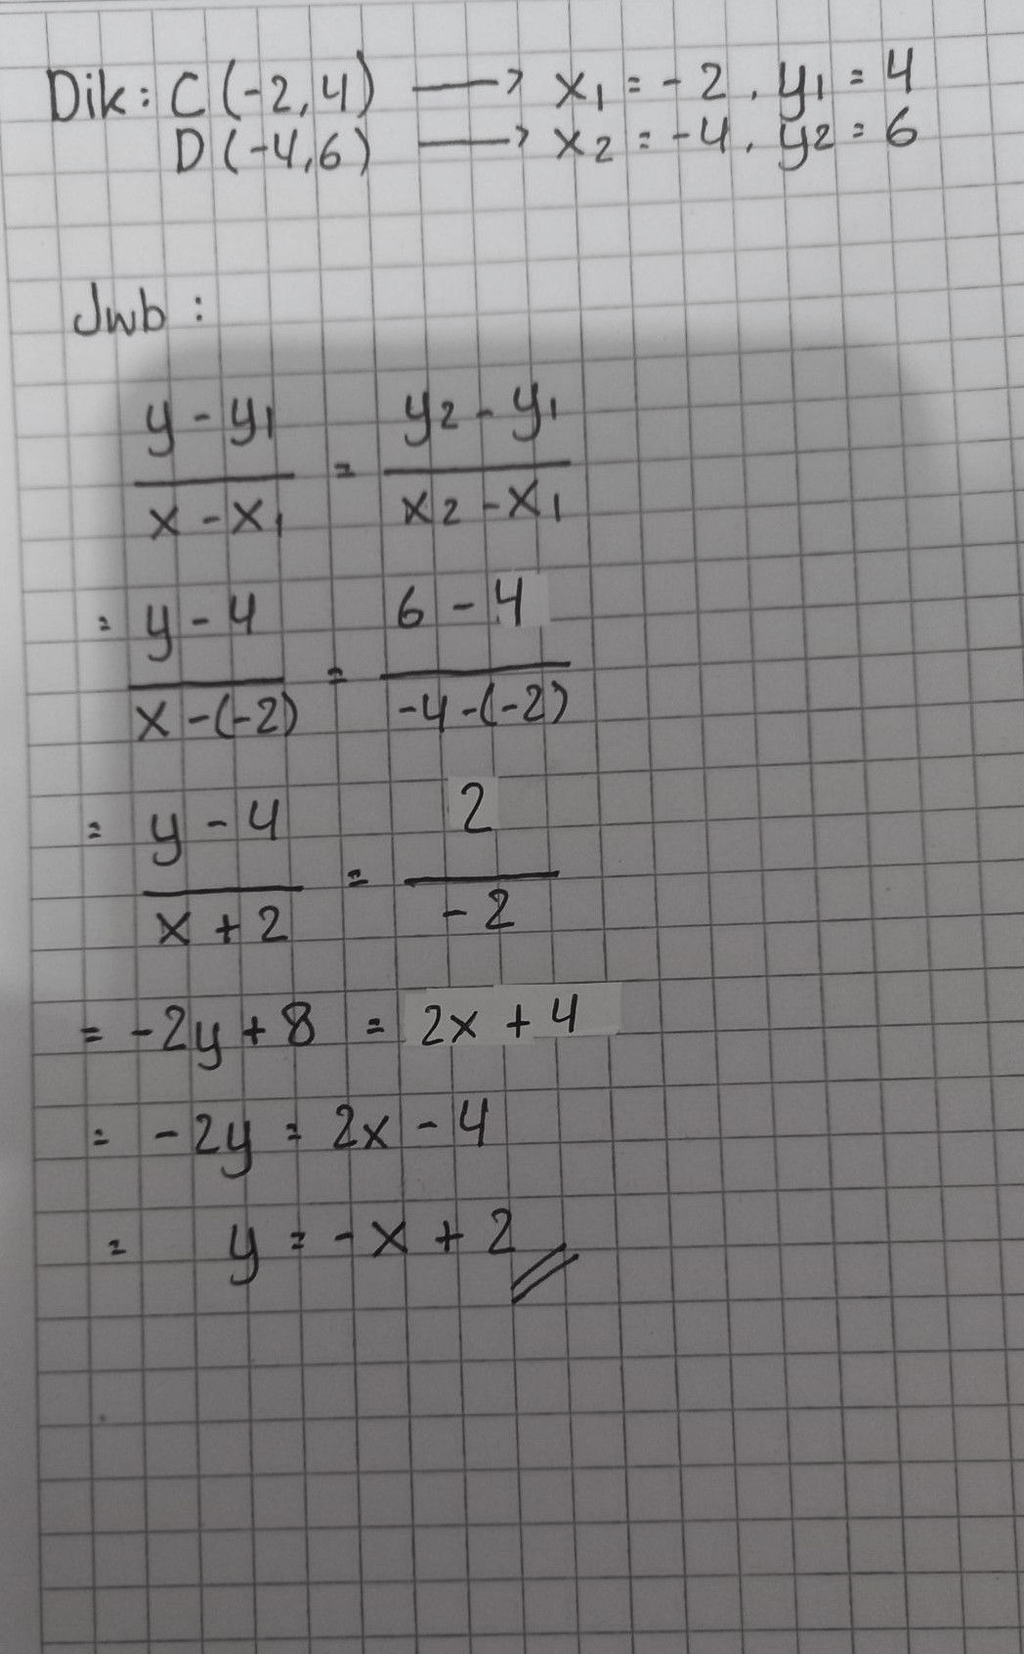 Dik: C (-2,4) → x₁ = -2, y₁ = 4
D (-4,6) → x₂ = -4, y₂ = 6
Jwb :
y - y₁ / x - x₁ = y₂ - y₁ / x₂ - x₁
= y - 4 / x - (-2) = 6 - 4 / -4 - (-2)
= y - 4 / x + 2 = 2 / -2
= -2y + 8 = 2x + 4
= -2y = 2x - 4
= y = -x + 2